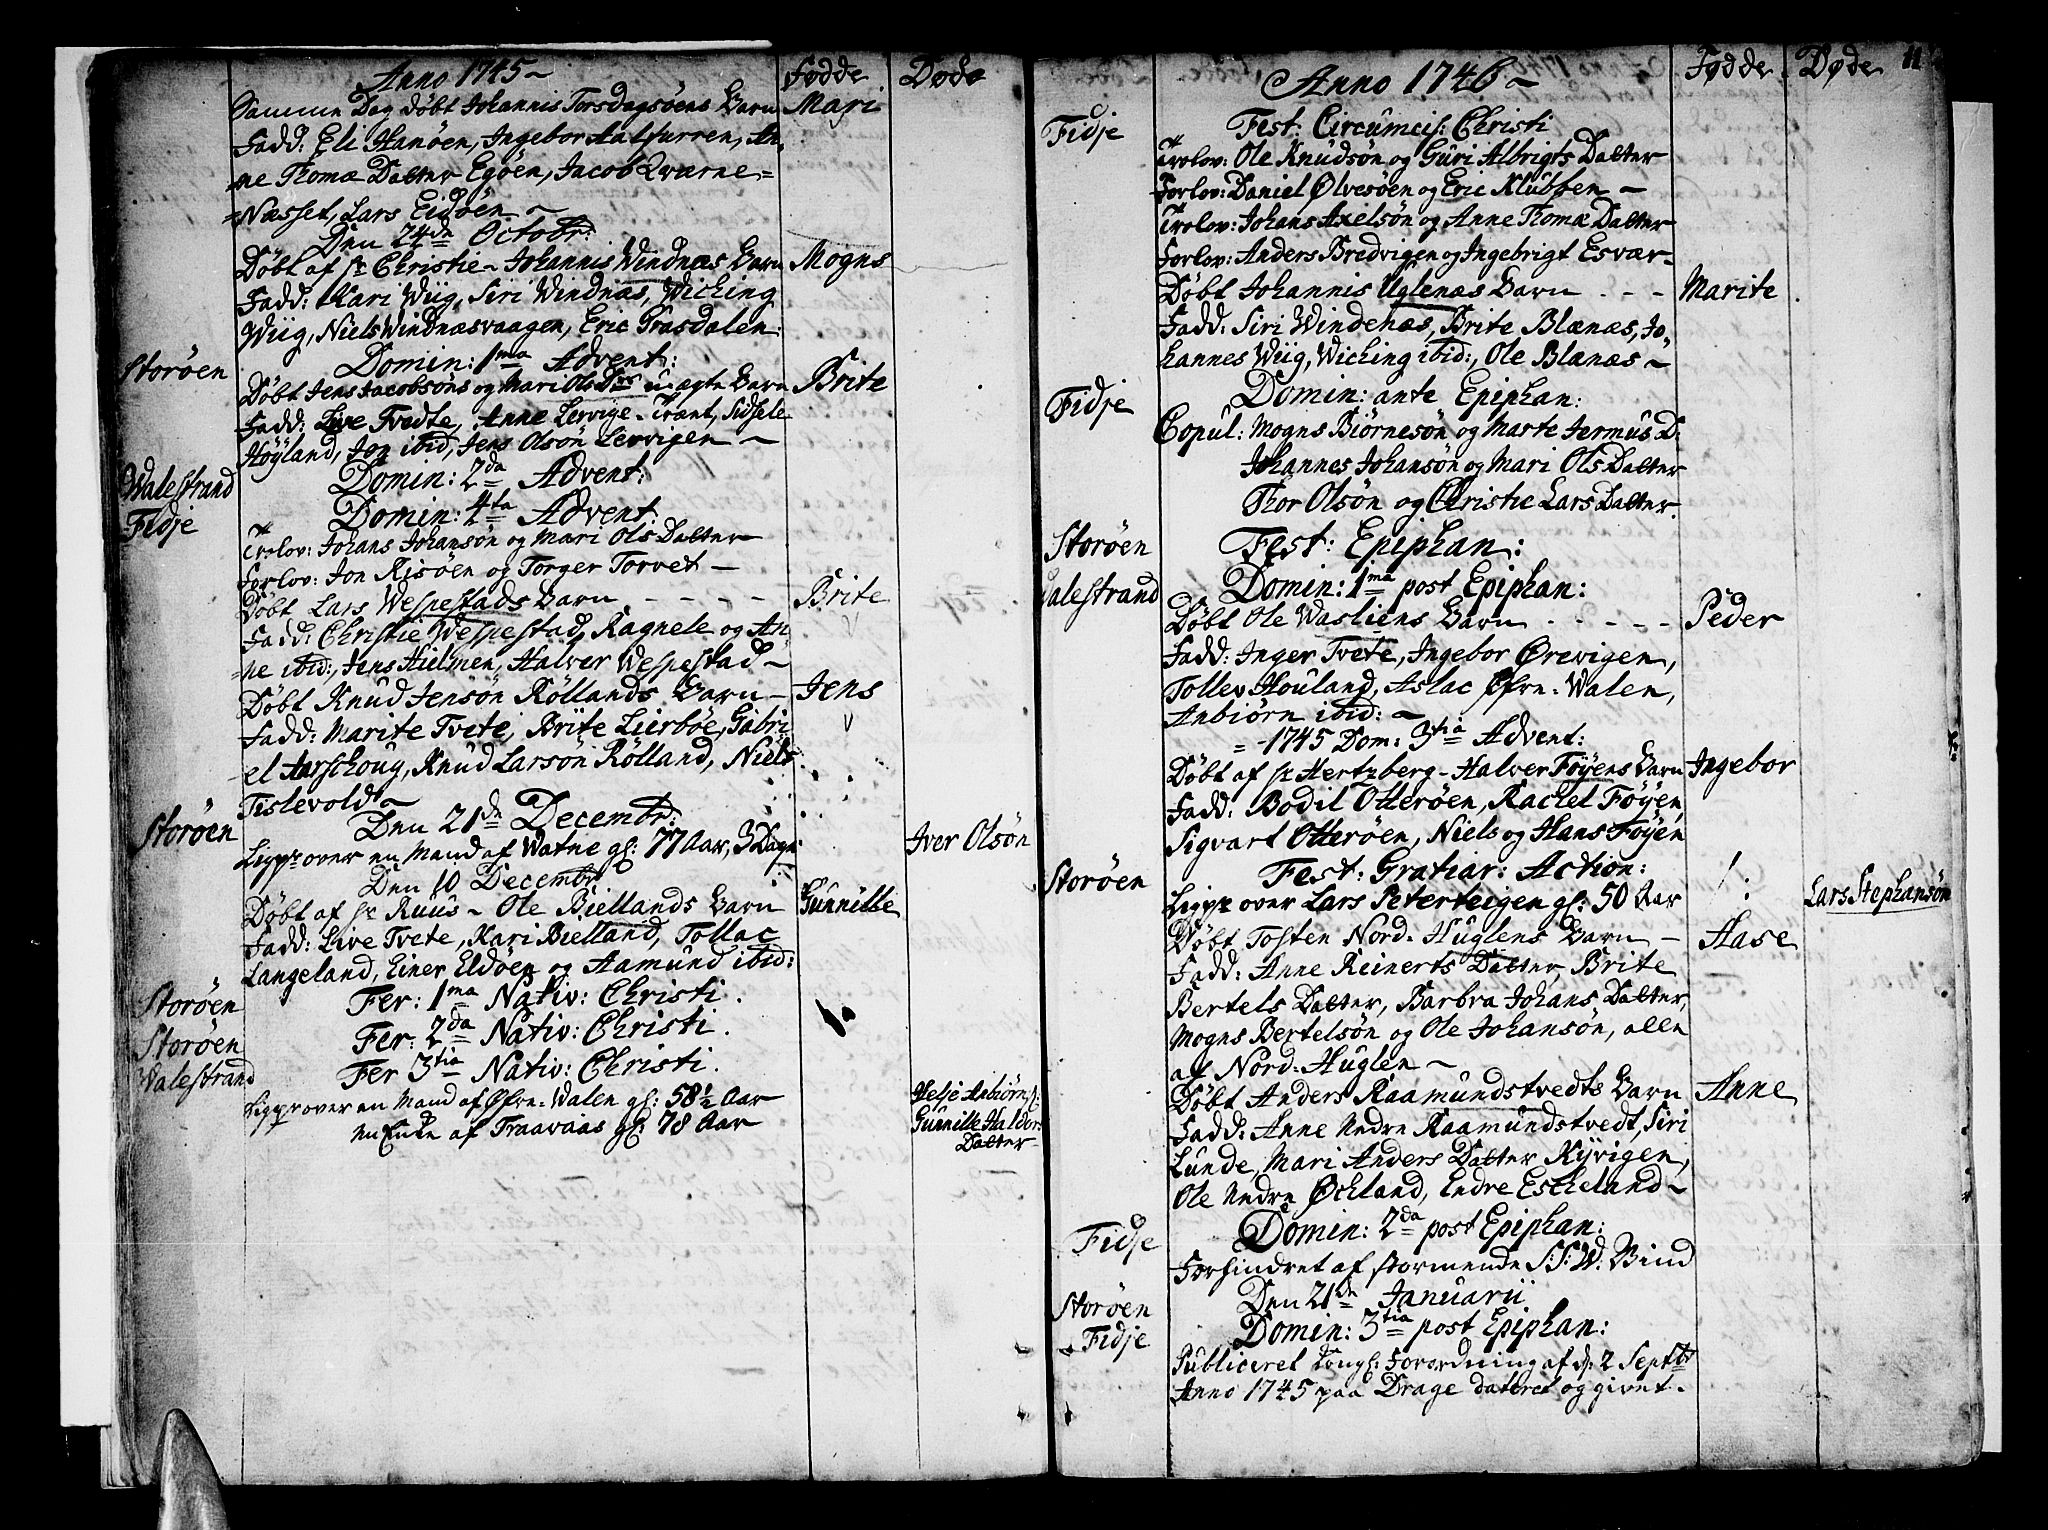 Anno 1745~ Fødde Døde
Samme Dag døbt Johannis Torsdagsøens Barn Mari
Fadd: Eli Hanøen, Ingebor Aalfurren, An,
ne Thomæ Datter Egøen, Jacob Qværne=
=Næsset, Lars Eidøen~
Den 24de Octobr:
Døbt af hr Christie~ Johannis Windnæs Barn Mogns
Fadd: Kari Wiig, Siri Windnæs, Wiching
Wiig, Niels Windnæsvaagen, Eric Grasdalen.
Storøen Domin: 1ma Advent:
Døbt Jens Jacobsöns og Mari Ols Dtrs uægte Barn Brite
Fadd: Live Tvedte, Anne Lervige-Trænt, Sidsele
Høÿland, Jon ibid, Jens Olsön Lervigen~
Walestrand Domin: 2da Advent:
Fidje Domin: 4ta Advent:
Trolov: Johans Johansön og Mari Ols Datter
Forlov: Jon Risöen og Torger Torvet-
Døbt Lars Wespestads Barn - - - - Brite
Fadd: Christie Wespestad, Ragnele og An
ne ibid:, Jens Hielmen, Halver Wespestad~
Døbt Knud Jensön Röllands Barn - Jens
Fadd: Marite Tvete, Brite Lierböe, Gabri
el Aarschoug, Knud Larsön Rölland, Niels
Tislevold~
Storöen Den 21de Decembr:
Ligpr over en Mand af Watne gl: 77 Aar, 3 Dage Iver Olsön
Den 10 Decembr
Døbt af hr Ruus~ Ole Biellands Barn Gunnille
Fadd: Live Tvete, Kari Bielland, Tollac
Langeland, Einer Eldøen og Aamund ibid:
Storøen Fer: 1ma Nativ: Christi.
Storøen Fer: 2da Nativ: Christi.
Walestrand Fer 3tia Nativ: Christi.
Ligpr over en Mand af Øfre-Walen gl: 58½ Aar Helje Anbiörns:
en Enke af Traavaas gl: 78 Aar Gunnille Haldor
Datter
Anno 1746~ Fødde Døde 11
Fidje Fest: Circumcis: Christi
Trolov: Ole Knudsön og Guri Albrigts Datter
Forlov: Daniel Ølvesøen og Eric Klubben~
Trolov: Johans Axelsön og Anne Thomæ Datter
Forlov: Anders Bredvigen og Ingebrigt Esvær-
Døbt Johannis Uglenæs Barn - - - Marite
Fadd: Siri Windenæs, Brite Blænæs, Jo
hannes Wiig, Wiching ibid:, Ole Blænæs~
Fidje Domin: ante Epiphan:
Copul: Mogns Biörnesön og Marte Jermus D:
Johannes Johansön og Mari Ols Datter
Thor Olsön og Christie Lars Datter.
Storöen Fest: Epiphan:
Walestrand Domin: 1ma post Epiphan:
Døbt Ole Wasliens Barn - - - - - Peder
Fadd: Inger Tvete, Ingebor Ørevigen,
Tollev Houland, Aslac Øfre-Walen,
Anbiörn ibid:~
= -1745 Dom: 3tia Advent:
Døbt af hr Hertzberg- Halver Føÿens Barn Ingebor
Fadd: Bodil Otterøen, Rachel Føÿen,
Sigvart Otterøen, Niels og Hans Føÿen
Storøen Fest: Gratiar: Action:
Ligpr over Lars Peterteigen gl: 50 Aar Lars Stephansön
Døbt Tosten Nord-Huglens Barn - Aase
Fadd: Anne Reinerts Datter, Brite
Bertels Datter, Barbra Johans Datter,
Mogns Bertelsön og Ole Johansön, allen
af Nord-Huglen~
Døbt Anders Raamundstvedts Barn Anne
Fadd: Anne Nedre Raamundstvedt, Siri
Lunde, Mari Anders Datter Kÿvigen,
Ole Nedre Øchland, Endre Escheland~
Fidje Domin: 2da post Epiphan:
Forhindret af stormende S:S:W: Vind
Storöen Den 21de Januarii
Fidje Domin: 3tia post Epiphan:
Publiceret Kongl: Forordning af d: 2 Septbr
Anno 1745 paa Drage dateret og givet.